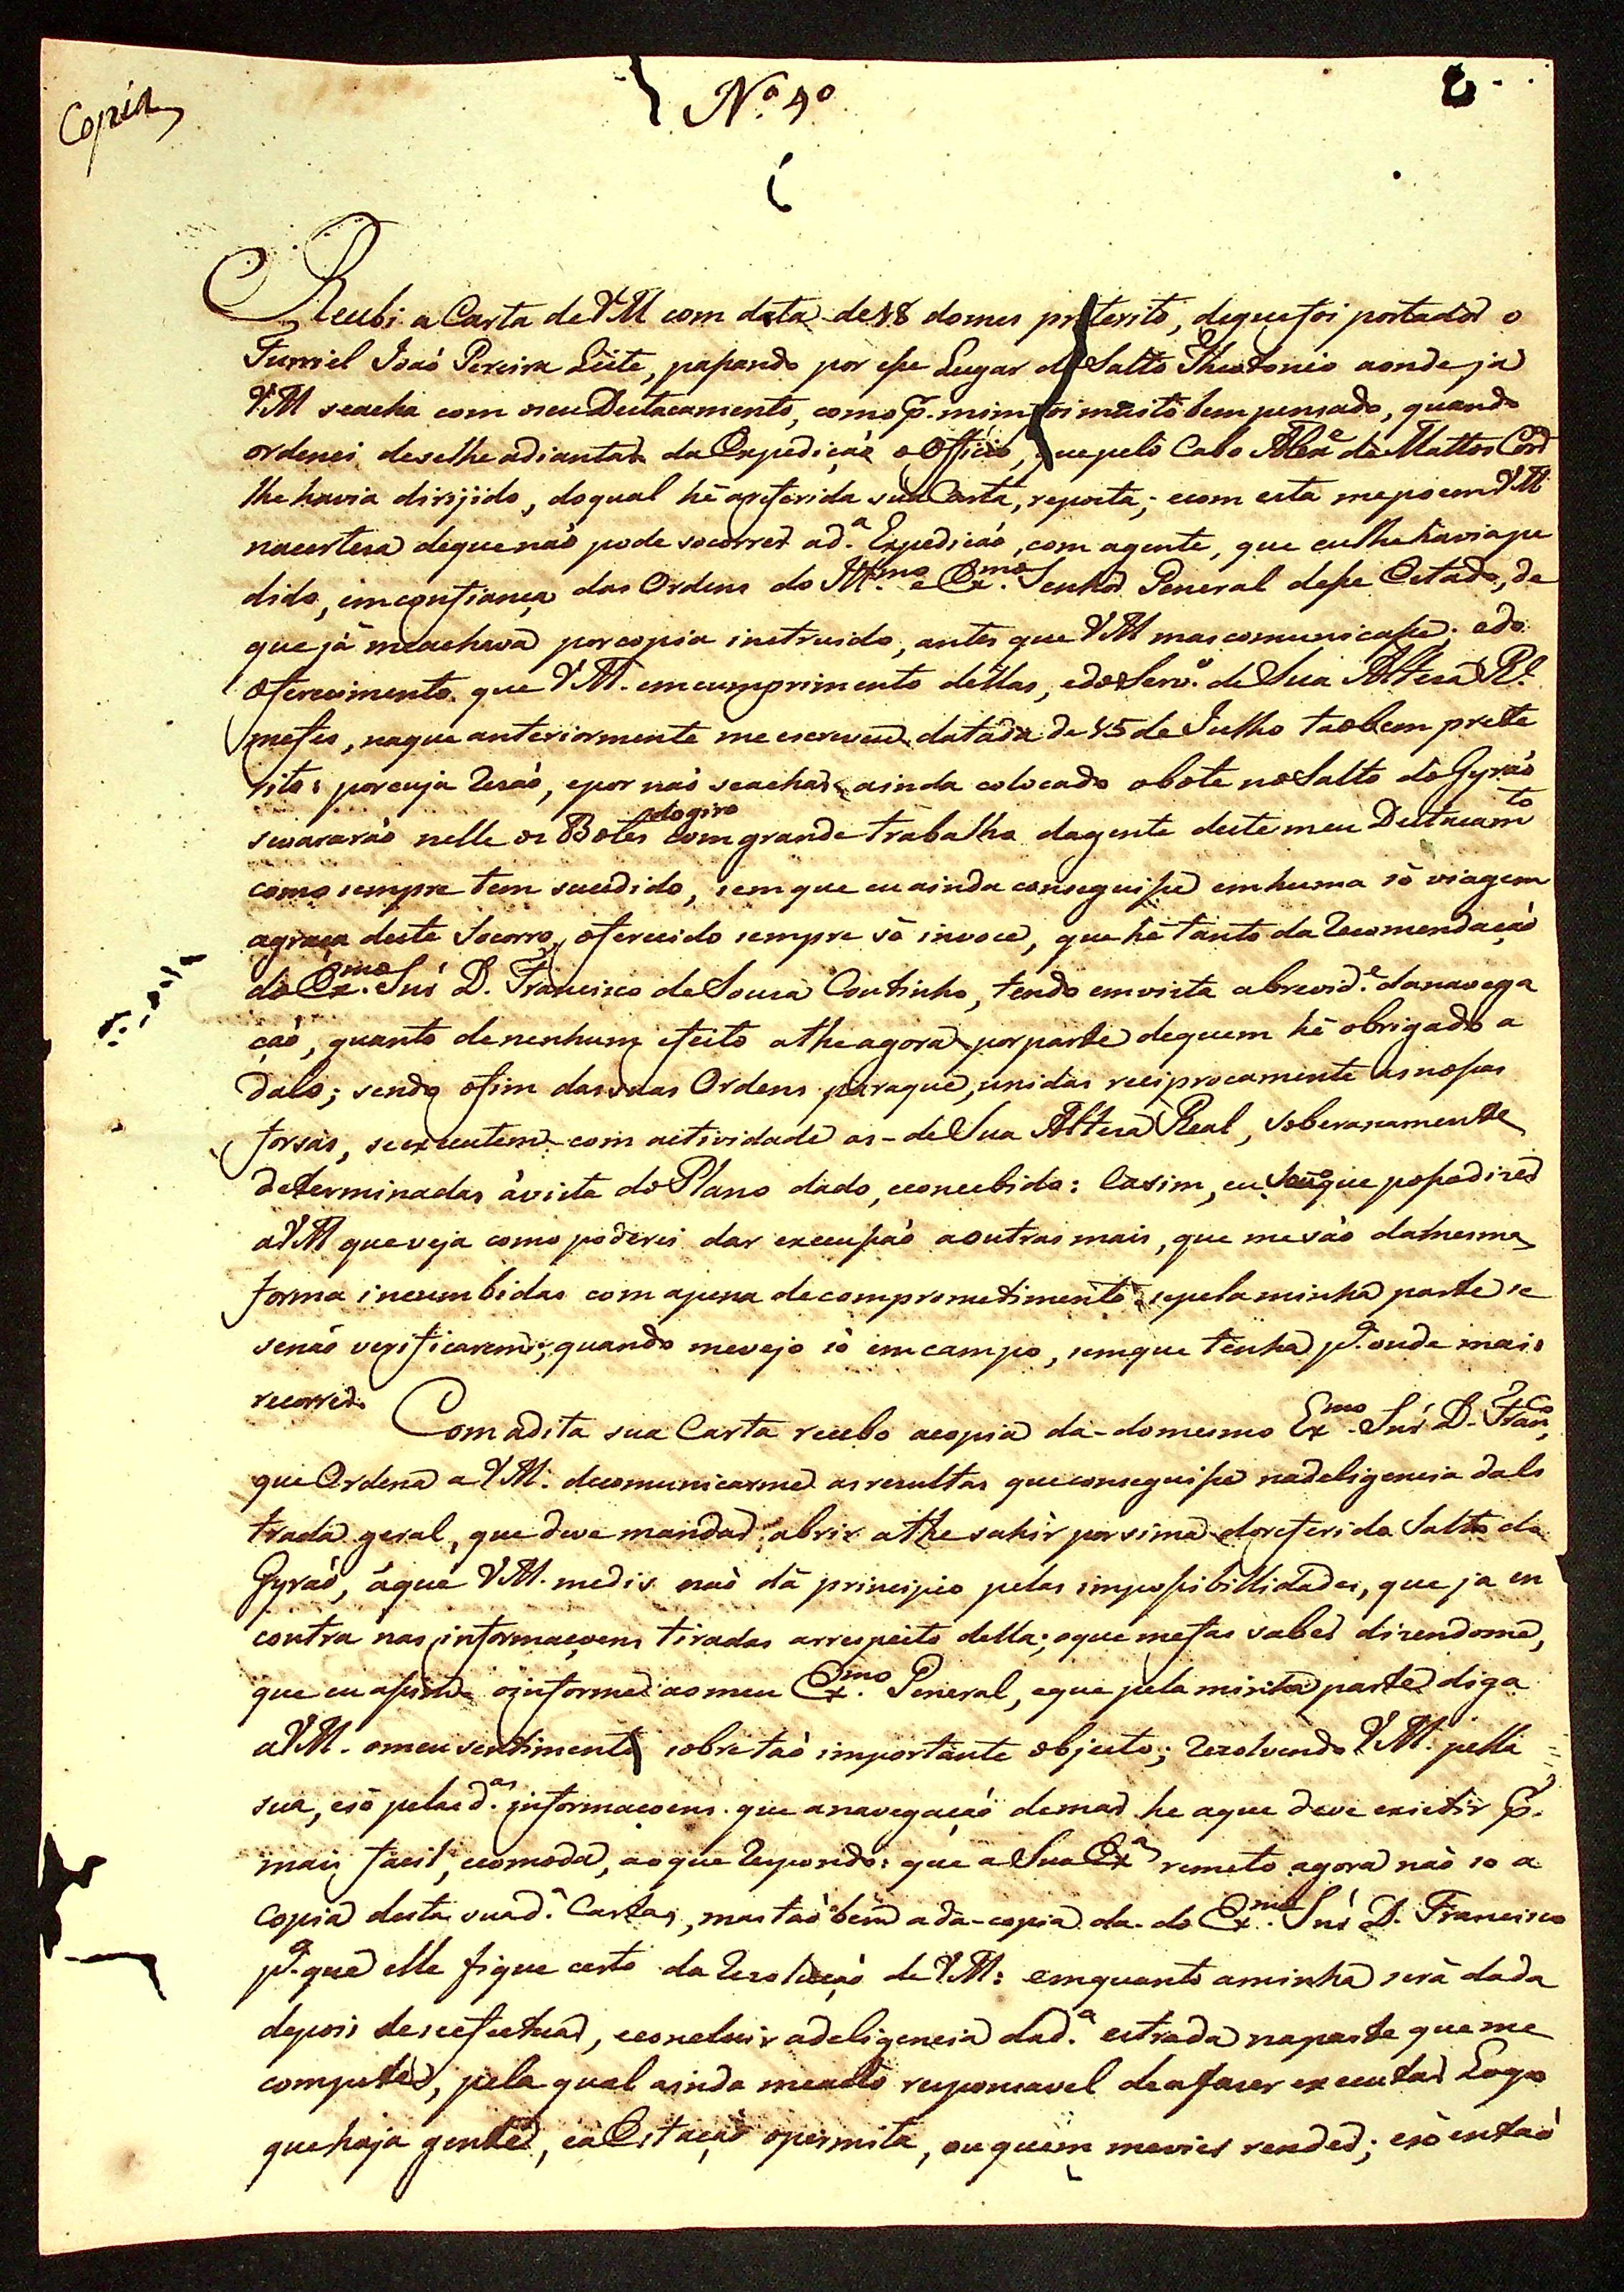 Copia
N.º 4º
Recebi a Carta de VM com data de 18 do mes preterito, de que foi portador o
Furriel Joaõ Pereira Leite, passando por esse Lugar do Salto Theotonio aonde já
VM se acha com o seu Destacamento, como p.r mim foi muito bem pensado, quando
ordenei de se lhe adiantar da Expediçaõ o Officio, que pelo Cabo Alex.e de Mattos Cord.o
lhe havia dirijido, do qual hé a referida sua Carta, reposta; e com esta me poem VM
na certesa de que naõ pode socorrer a d.ª Expediçaõ, com a gente, que eu lhe havia pe
dido, em confiança das Ordens do Ill.mo e Ex.mo Senhor General desse Estado, de
que já me achava por copia instruido, antes que VM mas comunicasse; e do
oferecimento que VM. em cumprimento dellas, e do Serv.º de Sua Altesa R.l
me fes, na que anteriormente me escreveu datada de 15 de Julho taobem prete
rito: por cuja rezaõ, e por naõ se achar ainda colocado o bote no Salto do Gyraõ
se vararaõ nelle os Botes do giro com grande trabalho da gente deste meu Destacam.to
como sempre tem sucedido, sem que eu ainda conseguisse em huma só viagem
a graça deste Socorro, oferecido sempre só in voce, que hé tanto da recomendaçaõ
do Ex.mo Snr D. Francisco de Sousa Coutinho, tendo em vista a brevid.e da navega
çaõ, quanto de nenhum efeito athe agora por parte de quem hé obrigado a
dalo; sendo o fim das suas Ordens para que, unidas reciprocamente as nossas
forsas, se executem com actividade as de Sua Altesa Real, Soberanamente
determinadas á vista do Plano dado, e concebido: E asim, eu sou o que possa dizer
a VM que veja como poderei dar execussaõ a outras mais, que me saõ da mesma
forma incumbidas com a pena de comprometimento se pela minha parte se
se naõ verificarem; quando me vejo só em campo, sem que tenha p.ª onde mais
recorrer.
Com a dita sua Carta recebo a copia da do mesmo Ex.mo Snr D. Fran.co
que Ordena a VM. de comunicarme as resultas que conseguisse na deligencia da Es
trada geral, que deve mandar abrir athe sahir por sima do referido Salto do
Gyraõ, á que VM. me dis naõ dá principio pelas impossibillidades, que ja en
contra nas informaçoens tiradas arrespeito della; o que me fas saber dizendome,
que eu assim o informe ao meu Ex.mo General, e que pela minha parte diga
a VM. o meu sentimento sobre taõ importante objecto; rezolvendo VM. pella
sua, e só pelas d.as informaçoens que a navegaçaõ do mar he a que deve existir p.r
mais facil, e comoda, ao que respondo: que a Sua Ex.ª remeto agora naõ so a
copia desta sua d.ª Carta, mas taõ bem a da copia da do Ex.mo Snr D. Francisco
p.ª que elle fique certo da rezoluçaõ de VM: em quanto a minha será dada
depois de se efectuar, e concluir a deligencia da d.ª estrada na parte que me
compete, pela qual ainda me acho responsavel de a faser executar Logo
que haja gente, e a Estaçaõ o permita, ou quem me vier render; e só entaõ